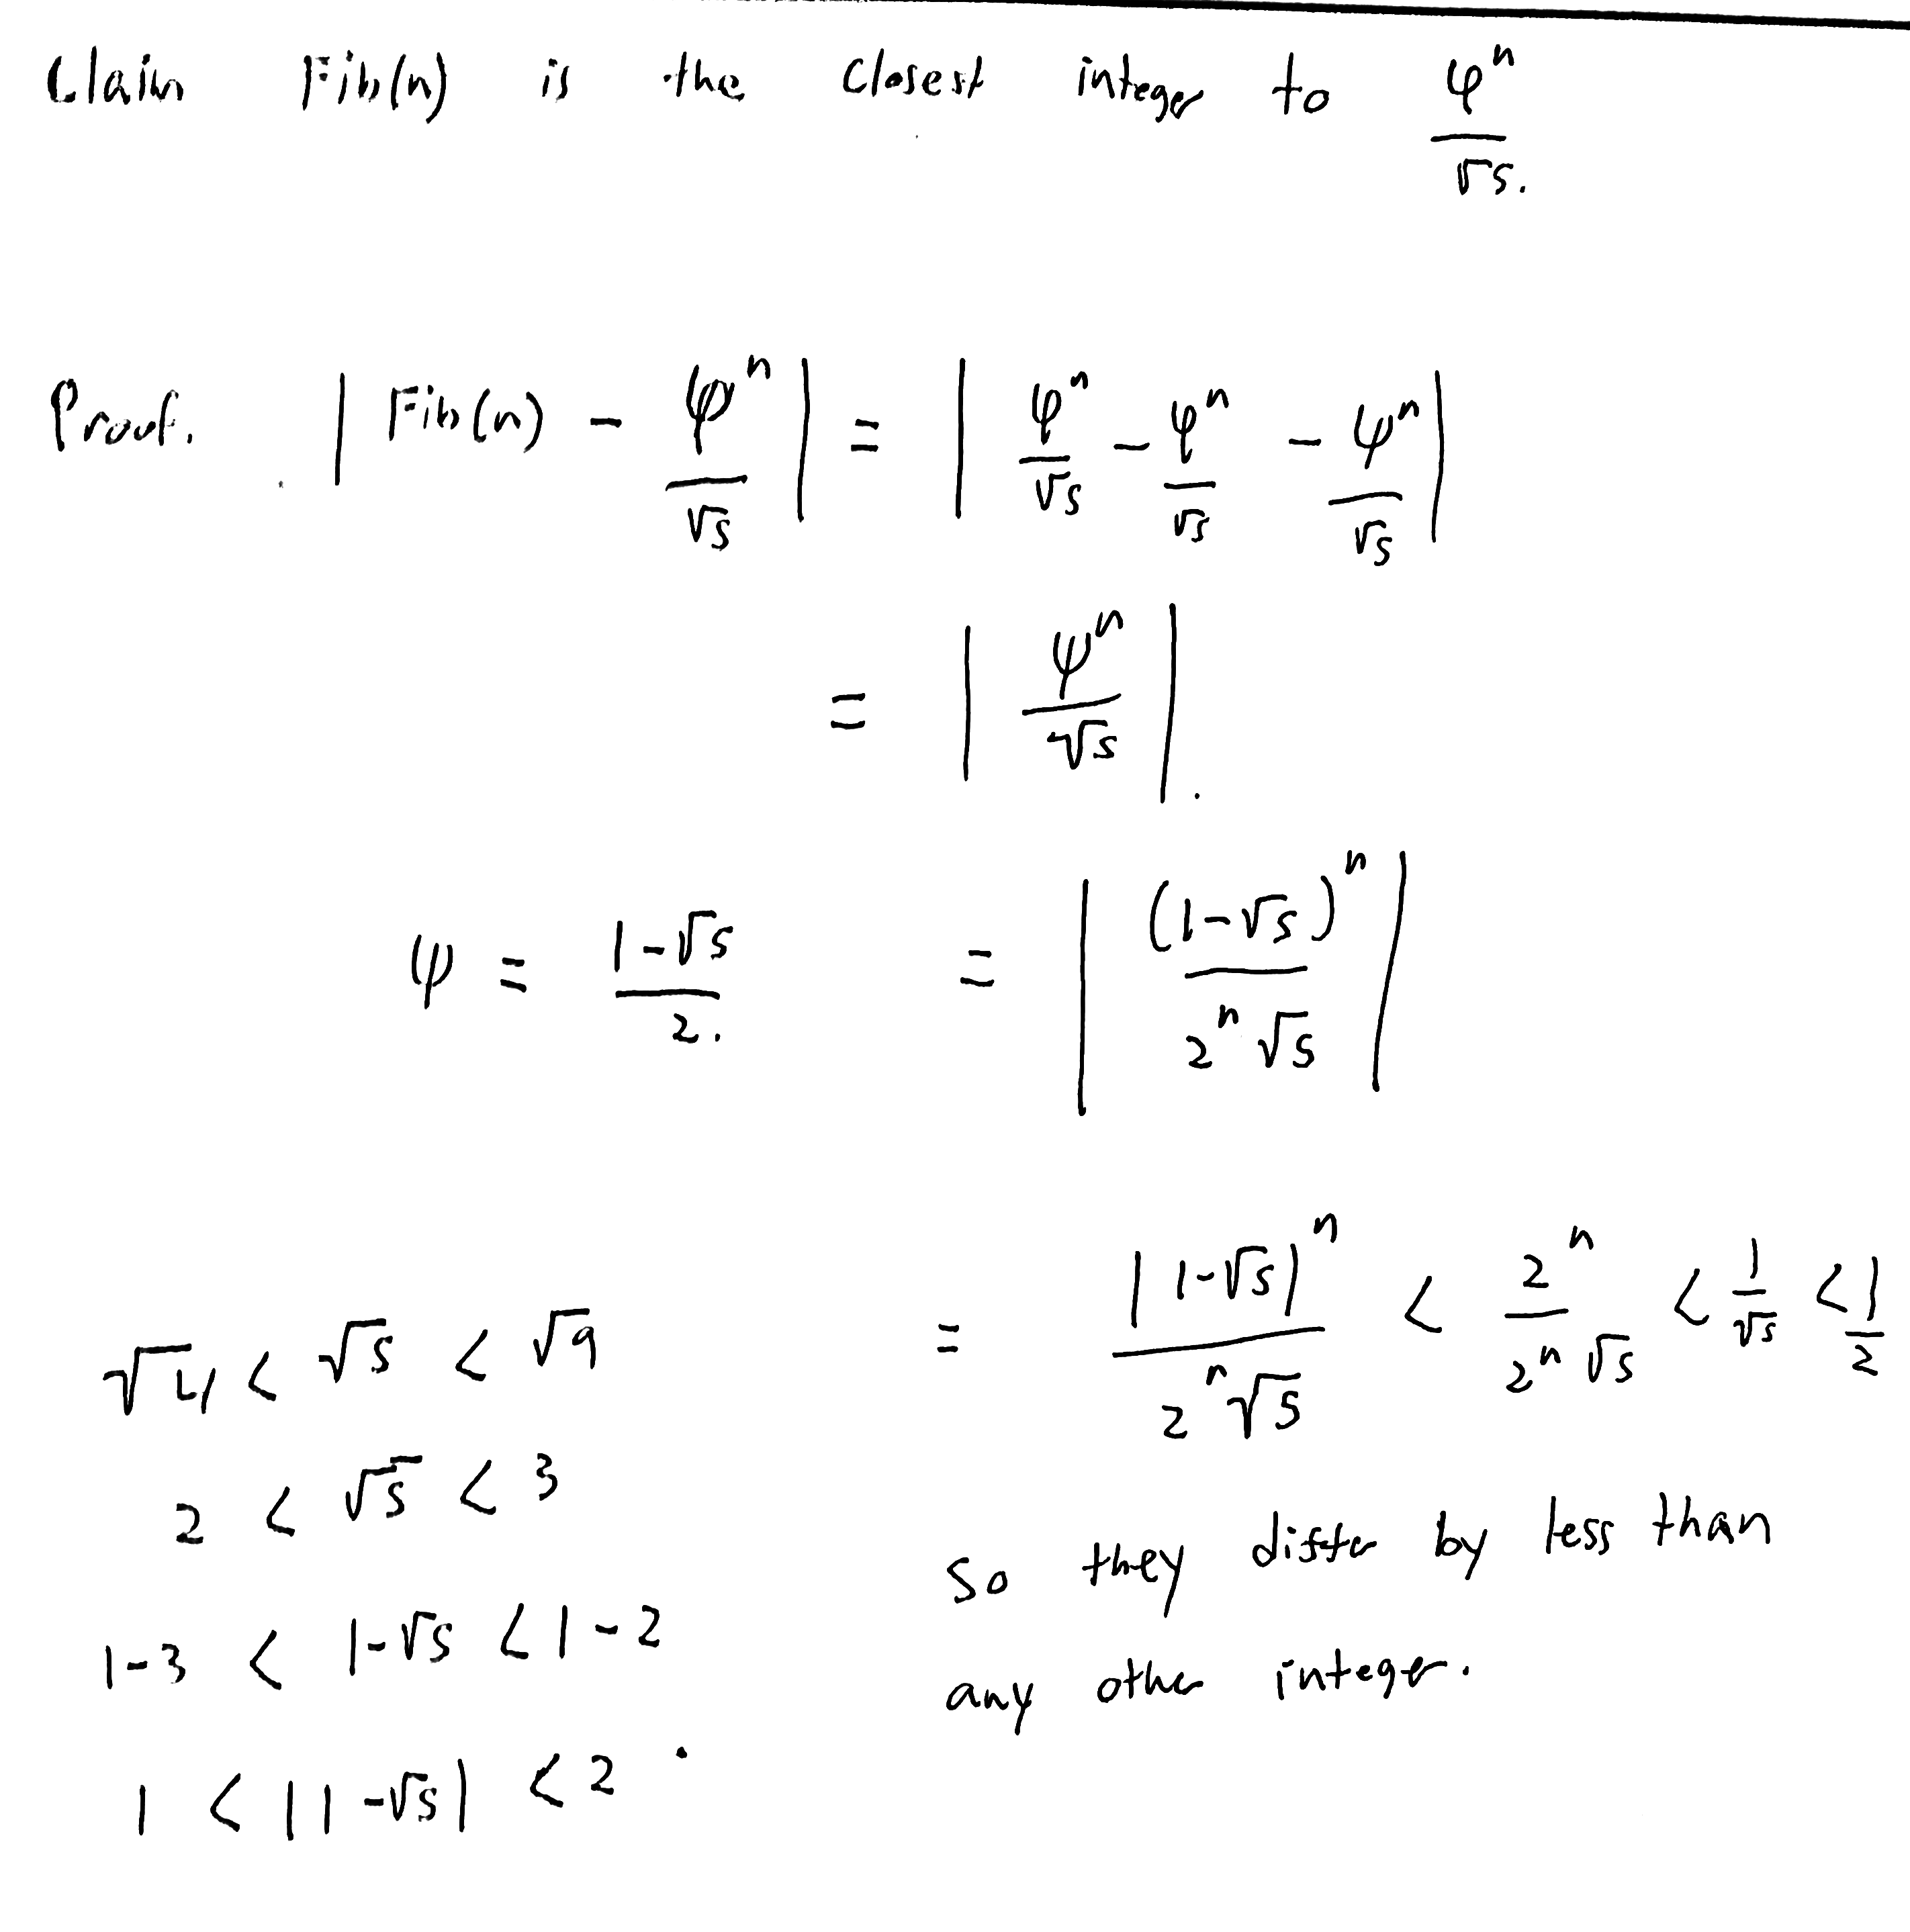 Claim Fib(n) is the closest integer to φⁿ/√5.
Proof. |Fib(n) - φⁿ/√5| = |φⁿ/√5 - φⁿ/√5 - ψⁿ/√5|
= |ψⁿ/√5|.
ψ = (1-√5)/2. = |(1-√5)ⁿ/(2ⁿ√5)|
√4 < √5 < √9 = |1-√5|ⁿ/(2ⁿ√5) < 2ⁿ/(2ⁿ√5) < 1/√5 < 1/2
2 < √5 < 3
so they differ by less than
1-3 < 1-√5 < 1-2
any other integer.
1 < |1-√5| < 2.